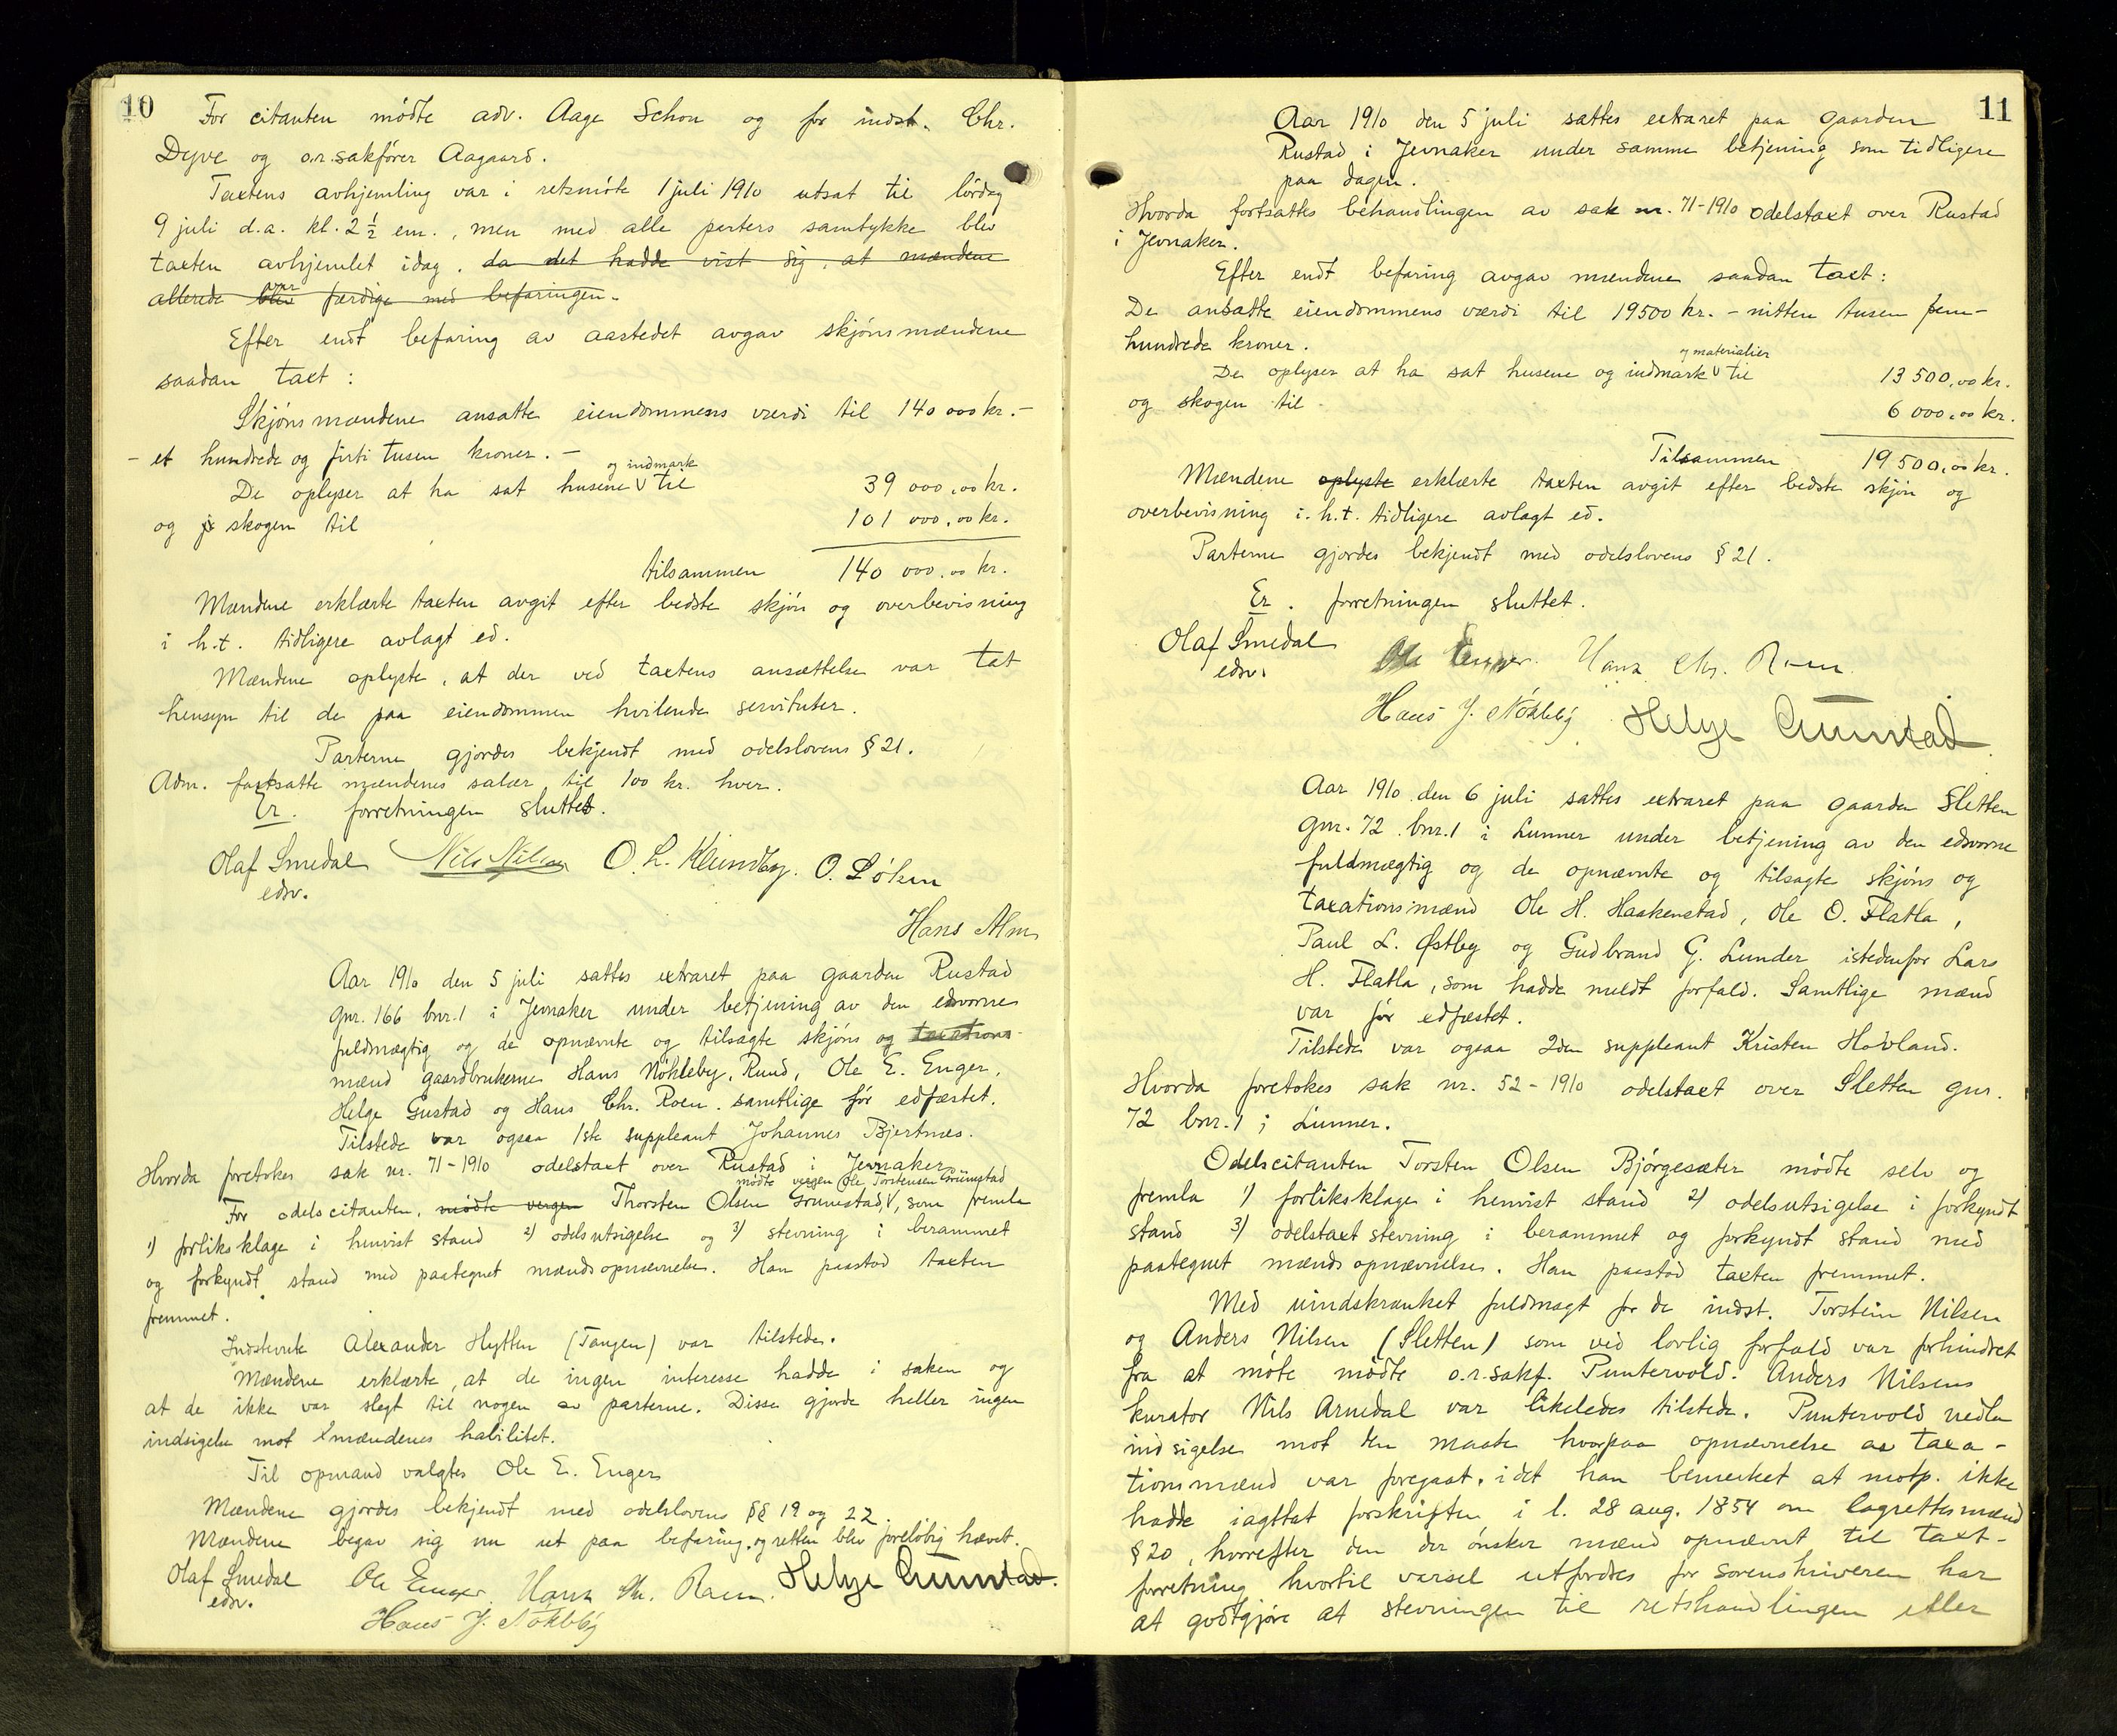 10
For citanten mödte adv. Aage Schou og for indst. Chr.
Dyve og o.r.sakförer Aagaard.
Taxtens avhjemling var i retsmöte 1 juli 1910 utsat til lördag
9 juli d.a. kl. 2 1/2 em., men med alle parters samtykke blev
taxten avhjemlet idag. da det hadde vist sig, at mændene
allerede blev var færdige med befaringen.
Efter endt befaring av aastedet avgav skjönsmændene
saadan taxt:
Skjönsmændene ansatte eiendommens værdi til 140 000 kr. -
- et hundrede og firti tusen kroner. -
og indmark
De oplyser at ha sat husene V til 39 000,00 kr.
og skogen til 101 000,00 kr.
tilsammen 140 000,00 kr.
Mændene erklærte taxten avgit efter bedste skjön og overbevisning
i h.t. tidligere avlagt ed.
Mændene oplyste, at der ved taxtens ansættelse var tat
hensyn til de paa eiendommen hvilende servituter.
Parterne gjordes bekjendt med odelslovens § 21.
Adm. fastsatte mændenes salær til 100 kr. hver.
Er. forretningen sluttet.
Olaf Smedal Nils Nilsen O. L. Klundby. O. Löken
edsv.
Hans Alm
Aar 1910 den 5 juli sattes extraret paa gaarden Rustad
gnr. 166 bnr. 1 i Jevnaker under betjening av den edsvorne
fuldmægtig og de opnævnte og tilsagte skjöns og taxations
mænd gaardbrukerne Hans Nökleby, Ruud, Ole E. Enger,
Helge Gustad og Hans Chr. Roen. samtlige för edfæstet.
Tilstede var ogsaa 1ste suppleant Johannes Bjertnes.
Hvorda foretokes sak nr. 71-1910 odelstaxt over Rustad i Jevnaker.
mödte vergen Ole Torstensen Grumstad
For odelscitanten, mödte vergen Thorsten Olsen Grumstad, V, som fremla
1) forliksklage i henvist stand 2) odelsutsigelse og 3) stevning i berammet
og forkyndt stand med paategnet mændsopnævnelse. Han paastod taxten
fremmet.
Indstevnte Alexander Hytten (Tangen) var tilstede.
Mændene erklærte, at de ingen interesse hadde i saken og
at de ikke var slegt til nogen av parterne. Disse gjorde heller ingen
indsigelse mot mændenes habilitet.
Til opmand valgtes Ole E. Enger
Mændene gjordes bekjendt med odelslovens §§ 19 og 22.
Mændene begav sig nu ut paa befaring. og retten blev foreløbig hævet.
Olaf Smedal Ole Enger. Hans Chr. Roen. Helge Grumstad.
edsv.
Hans J. Nökleby
11
Aar 1910 den 5 juli sattes extraret paa gaarden
Rustad i Jevnaker under samme betjening som tidligere
paa dagen.
Hvorda fortsattes behandlingen av sak nr. 71-1910 odelstaxt over Rustad
i Jevnaker.
Efter endt befaring avgav mændene saadan taxt:
De ansatte eiendommens værdi til 19500 kr. - nitten tusen fem-
hundrede kroner.
og materialier
De oplyser at ha sat husene og indmark V til 13 500,00 kr.
og skogen til 6 000,00 kr.
Tilsammen 19 500,00 kr.
Mændene oplyste erklærte taxten avgit efter bedste skjön og
overbevisning i. h.t. tidligere avlagt ed.
Parterne gjordes bekjendt med odelslovens § 21.
Er. forretningen sluttet.
Olaf Smedal Ole Enger. Hans Chr. Roen.
edsv.
Hans J. Nökleby Helge Grumstad.
Aar 1910 den 6 juli sattes extraret paa gaarden Sletten
gnr. 72 bnr. 1 i Lunner under betjening av den edsvorne
fuldmægtig og de opnævnte og tilsagte skjöns og
taxationsmænd Ole H. Haakenstad, Ole O. Flatla,
Paul L. Østby og Gudbrand G. Lunder istedenfor Lars
H. Flatla, som hadde meldt forfald. Samtlige mænd
var för edfæstet.
Tilstede var ogsaa 2den suppleant Kristen Hovland.
Hvorda foretokes sak nr. 52-1910 odelstaxt over Sletten gnr.
72 bnr. 1 i Lunner.
Odelscitanten Torsten Olsen Bjørgesæter mödte selv og
fremla 1) forliksklage i henvist stand 2) odelsutsigelse i forkyndt
stand 3) odelstaxtstevning i berammet og forkyndt stand med
paategnet mændsopnævnelse. Han paastod taxten fremmet.
Med uindskrænket fuldmagt for de indst. Torstein Nilsen
og Anders Nilsen (Sletten) som ved lovlig forfald var forhindret
fra at möte mödte o.r.sakf. Puntervold. Anders Nilsens
kurator Nils Arnedal var likeledes tilstede. Puntervold nedla
indsigelse mot den maate hvorpaa opnævnelse av taxa-
tionsmænd var foregaat, idet han bemerket at motp. ikke
hadde iagttat forskriften i l. 28 aug. 1854 om lagrettesmænd
§ 20, hvorefter den der önsker mænd opnævnt til taxt-
forretning hvortil varsel utfordres for sorenskriveren har
at godtgjöre at stevningen til retshandlingen eller